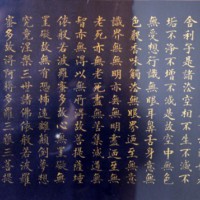 舍利子是諸法空相不生不滅不
垢不淨不增不減是故空中無色
無受想行識無眼耳鼻舌身意無
色聲香味觸法無眼界乃至無意
識界無無明亦無無明盡乃至無
老死亦無老死盡無苦集滅道無
智亦無得以無所得故菩提薩埵
依般若波羅蜜多故心無罣礙無
罣礙故無有恐怖遠離顛倒夢想
究竟涅槃三世諸佛依般若波羅
蜜多故得阿耨多羅三藐三菩提